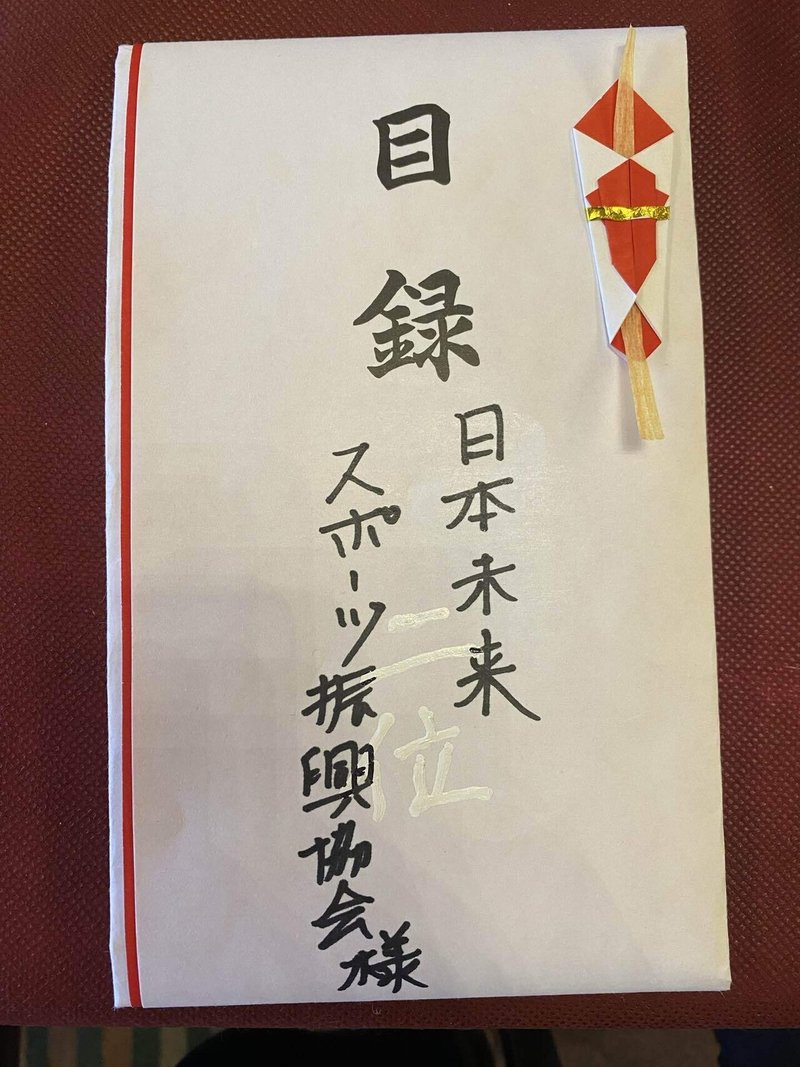 目録
日本未来
スポーツ振興協会様
二位